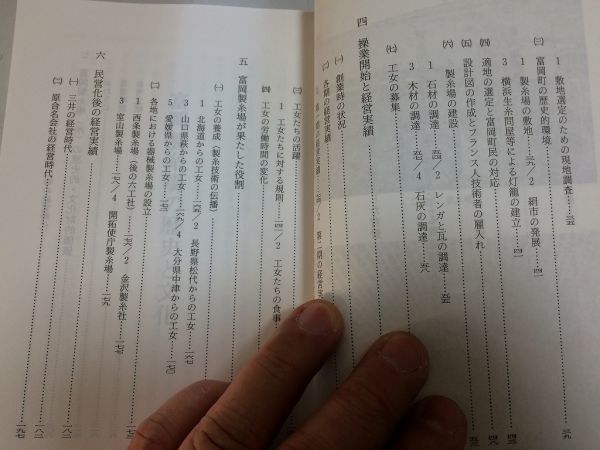 1 敷地選定のための現地調査……三九
(三) 富岡町の歴史的環境
1 製糸場の敷地……三九/2 絹市の発展……四一
3 横浜生糸問屋等による灯籠の建立……四一
(四) 適地の選定と富岡町民の対応……四三
(五) 設計図の作成とフランス人技術者の雇入れ……四八
(六) 製糸場の建設……五三
1 石材の調達……/2 レンガと瓦の調達
3 木材の調達……/4 石灰の調達……
(七) 工女の募集
四 操業開始と経営実績
(一) 創業時の状況
(二) 各期の経営実績
(三) 工女たちの活躍
1 工女たちに対する規則……/2 工女たちの食事
(四) 工女の労働時間の変化
五 富岡製糸場が果たした役割
(一) 工女の養成(製糸技術の伝播)
1 北海道からの工女……一六五/2 長野県松代からの工女……一六七
3 山口県萩からの工女……一六八/4 大分県中津からの工女……一七〇
5 愛媛県からの工女……一七三
(二) 各地における器械製糸場の設立
1 西条製糸場(後の六工社)……一七六/2 金沢製糸社……一七七
3 室山製糸場……一七八/4 開拓使庁製糸場……一七九
六 民営化後の経営実績
(一) 三井の経営時代……一八二
(二) 原合名会社の経営時代……一九七